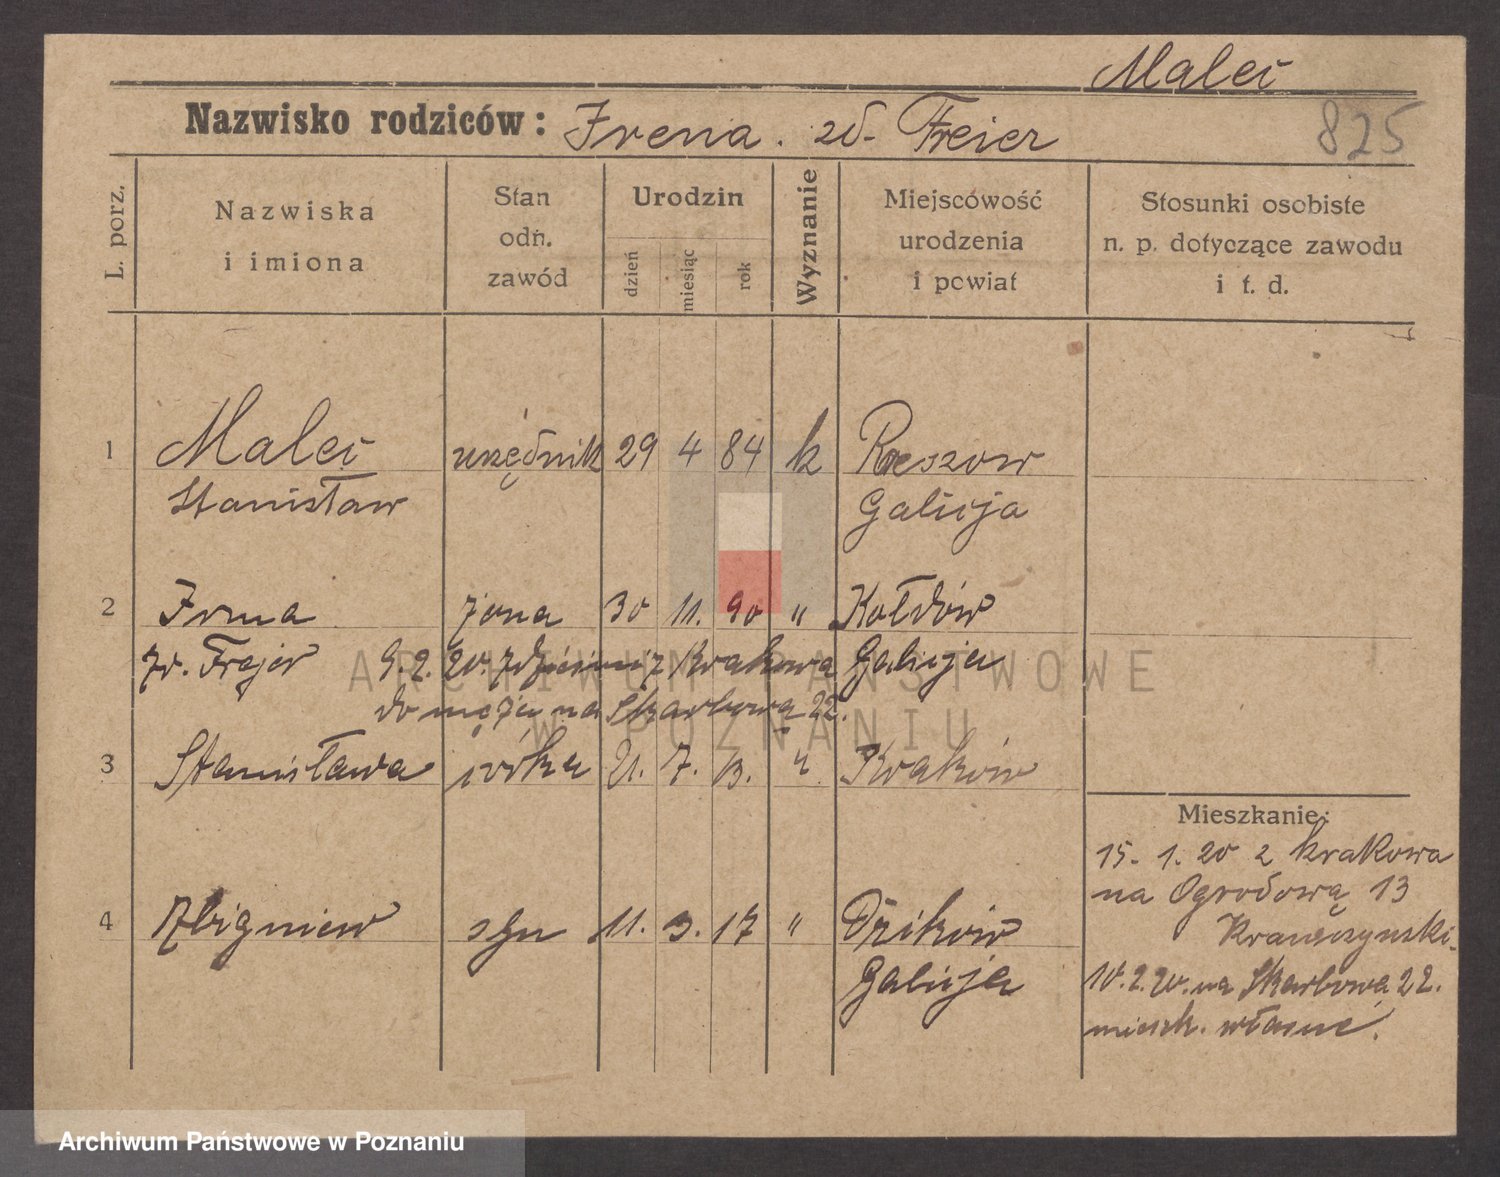 Maleć
Nazwisko rodziców: Irena. zd. Freier
825
L. porz.
Nazwiska i imiona
Stan odn. zawód
Urodzin
dzień
miesiąc
rok
Wyznanie
Miejscowość urodzenia i powiat
Stosunki osobiste n. p. dotyczące zawodu i t. d.
1 Maleć urzędnik 29 4 84 k Rzeszow
Stanisław Galicja
2 Irena żona 30 11. 90 " Kołdów
zd. Frejer 9.2.20. z dziećmi z Krakowa Galicja
do męża na Skarbową 22.
3 Stanisława córka 21. 7. 13. " Kraków
Mieszkanie:
15. 1. 20 z Krakowa
na Ogrodową 13
4 Zbigniew syn 11. 3. 17 " Dzików
Galicja
Krawczynski.
10.2.20. na Skarbową 22.
mieszk. własne.
ARCHIWUM PAŃSTWOWE
W POZNANIU
Archiwum Państwowe w Poznaniu